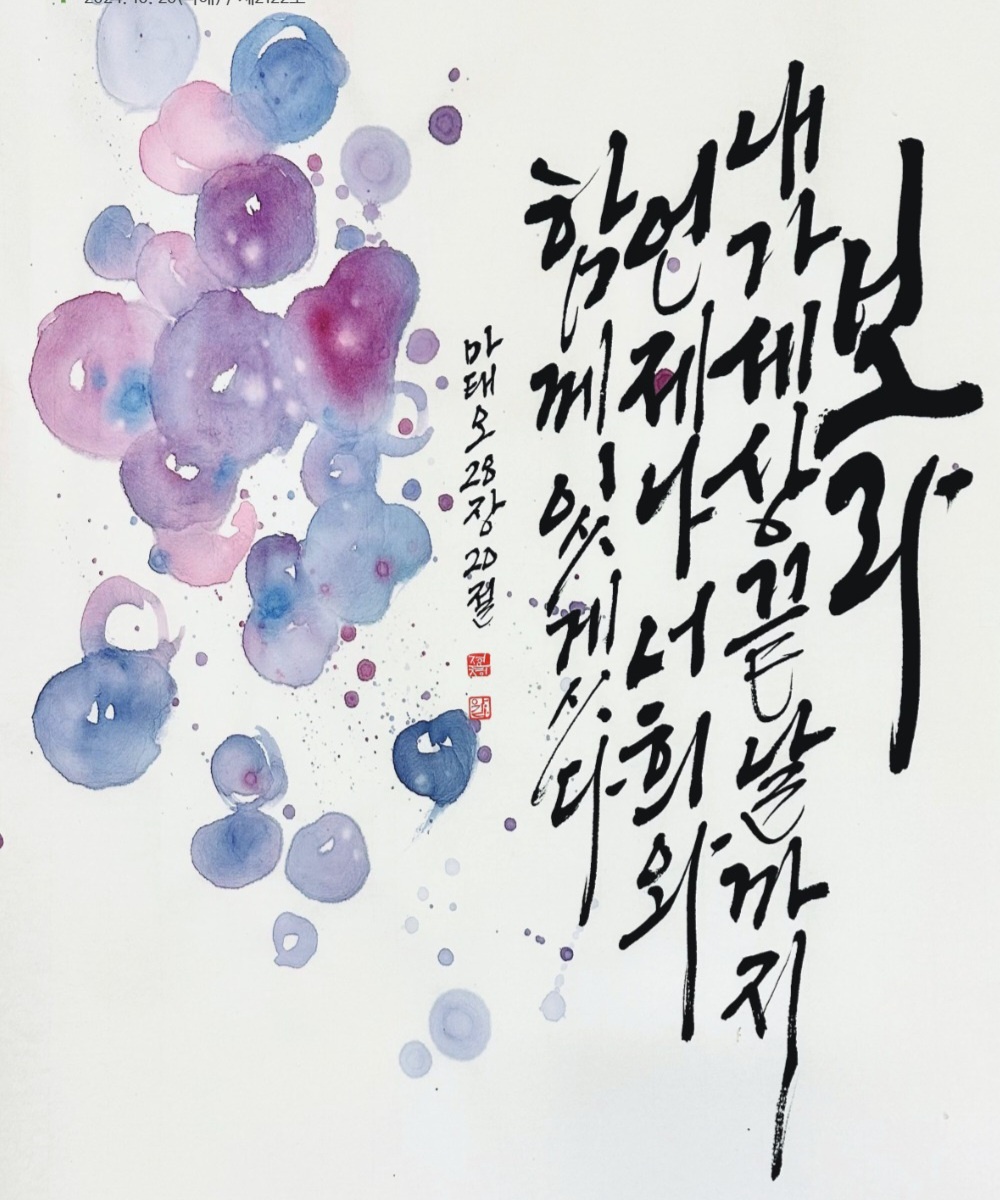 보라
내가 세상 끝날까지
언제나 너희와
함께 있겠다
마태오 28장 20절